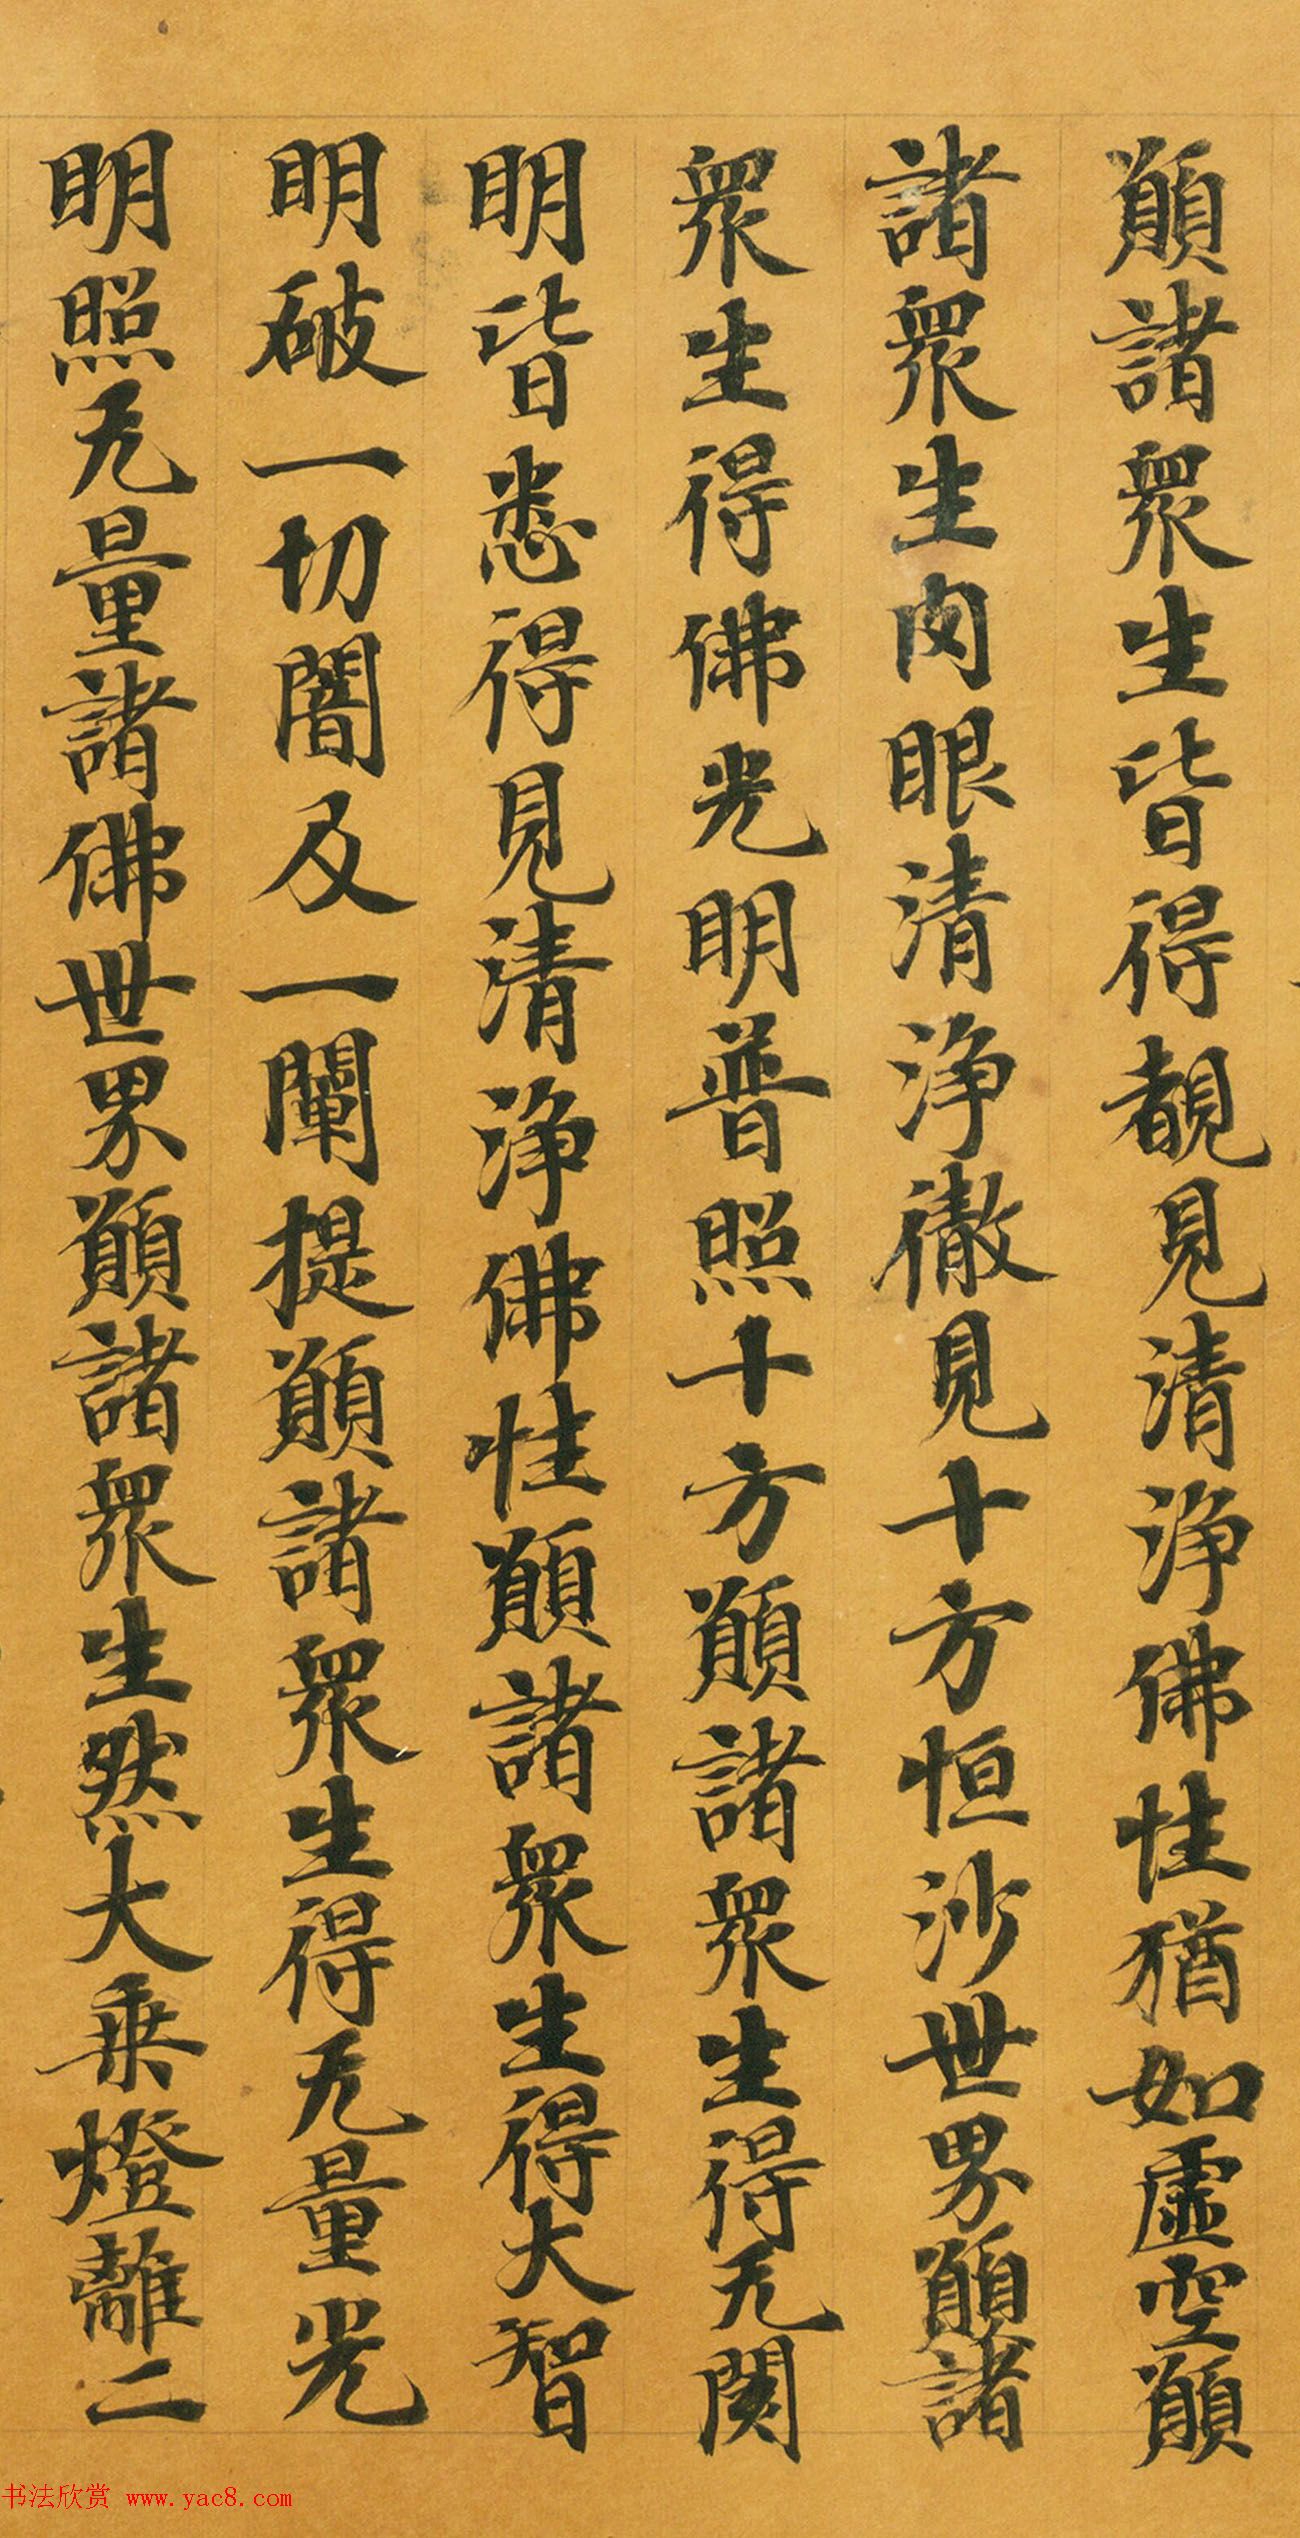 願諸眾生皆得覩見清淨佛性猶如虛空願
諸眾生肉眼清淨徹見十方恒沙世界願諸
眾生得佛光明普照十方願諸眾生得无閡
明皆悉得見清淨佛性願諸眾生得大智
明破一切闇及一闡提願諸眾生得无量光
明照无量諸佛世界願諸眾生然大乘燈離二
书法欣赏 www.yac8.com